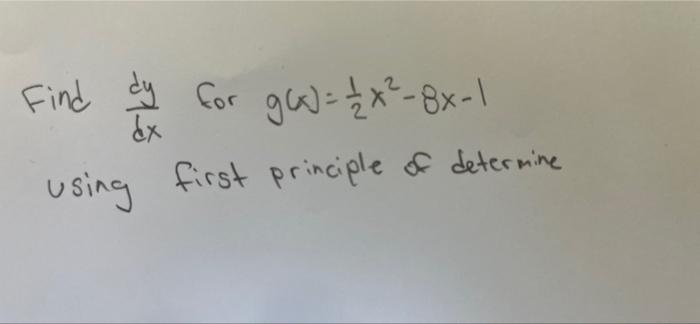 Find dy/dx for g(x)=1/2x²-8x-1
using first principle of determine